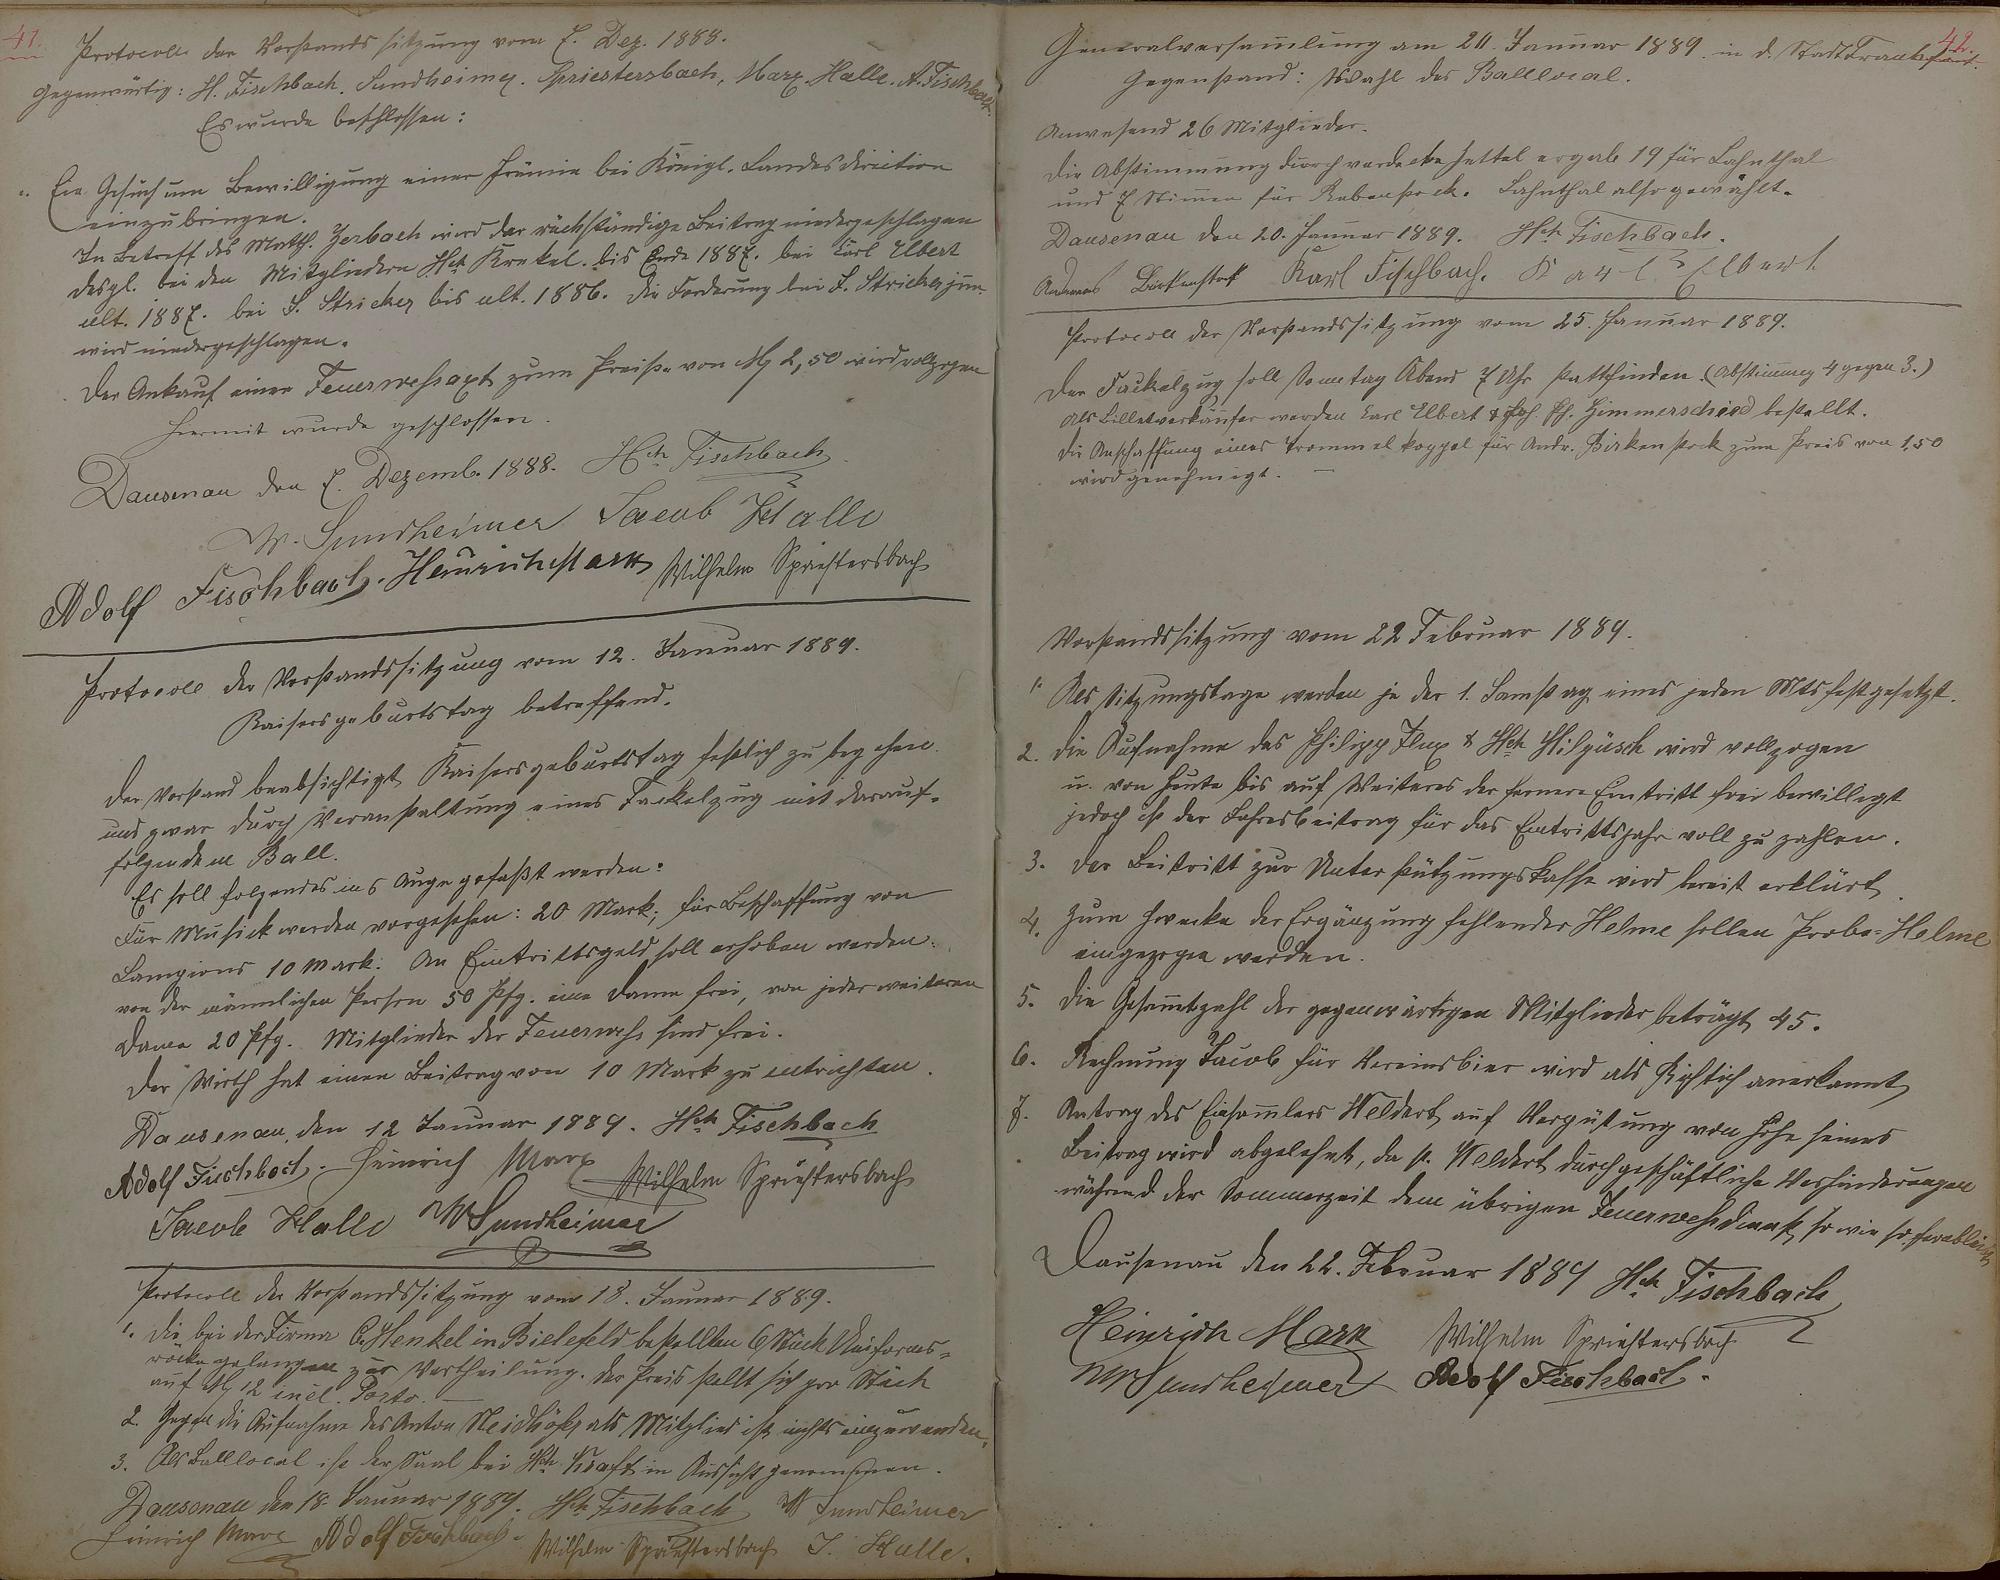 41.
Protocoll der Vorstandssitzung vom 7. Dez. 1888.
Gegenwärtig: H. Fischbach. Sundheimer. Spriestersbach, Marx. Halle. A. Fischbach.
Es wurde beschlossen:
Ein Gesuch um Bewilligung einer Prämie bei Königl. Landesdirection
einzubringen.
In Betreff des Math. Zerbach wird der rückständige Beitrag niedergeschlagen
desgl. bei den Mitgliedern Hch Krekel bis Ende 1887. bei Carl Elbert
ult. 1887. bei J. Stricker bis ult. 1886. Die Forderung bei J. Stricker jun.
wird niedergeschlagen.
Der Ankauf einer Feuerwehraxt zum Preise von M 2,50 wird vollzogen
Hiermit wurde geschlossen.
Dausenau den 7. Dezemb. 1888. Hch Fischbach
W. Sundheimer Jacob Halle
Adolf Fischbach. Heinrich Marx Wilhelm Spriestersbach
Protocoll der Vorstandssitzung vom 12. Januar 1889.
Kaisersgeburtstag betreffend.
Der Vorstand beabsichtigt Kaisersgeburtstag festlich zu begehen
und zwar durch Veranstaltung eines Fackelzug mit darauf-
folgendem Ball.
Es soll folgendes ins Auge gefaßt werden:
Für Musick werden vorgesehen: 20 Mark; für Beschaffung von
Lampions 10 Mark. An Eintrittsgeld soll erhoben werden:
von der männlichen Person 50 Pfg. eine Dame frei, von jeder weiteren
Dame 20 Pfg. Mitglieder der Feuerwehr sind frei.
Der Wirth hat einen Beitrag von 10 Mark zu entrichten.
Dausenau, den 12 Januar 1889. Hch Fischbach
Adolf Fischbach. Heinrich Marx Wilhelm Spriestersbach
Jacob Halle W Sundheimer
Protocoll der Vorstandssitzung vom 18. Januar 1889.
1. Die bei der Firma C. Henkel in Bielefeld bestellten 6 Stück Uniforms-
röcke gelangen zur Vertheilung. Der Preis stellt sich pro Stück
auf M 12 incl. Porto.
2. Gegen die Aufnahme des Anton Neidhöfer als Mitglied ist nichts einzuwenden.
3. Als Balllocal ist der Saal bei Hch Kraft in Aussicht genommen.
Dausenau den 18. Januar 1889. Hch Fischbach W Sundheimer
Heinrich Marx Adolf Fischbach. Wilhelm Spriestersbach J. Halle.
42.
Generalversammlung am 20. Januar 1889. in d. Stadt Frankfurt.
Gegenstand: Wahl des Balllocal.
Anwesend 26 Mitglieder.
Die Abstimmung durch verdeckte Zettel ergab 19 für Lahnthal
und 7 Stimmen für Rebenstock. Lahnthal also gewählt.
Dausenau den 20. Januar 1889. Hch Fischbach.
Andreas Birkenstock Karl Fischbach. Karl Elbert
Protocoll der Vorstandssitzung vom 25. Januar 1889.
Der Fackelzug soll Sonntag Abend 7 Uhr stattfinden. (Abstimmung 4 gegen 3.)
Als Billetverkäufer werden Carl Elbert & Ph. Zimmerschied bestellt.
Die Anschaffung eines Trommelkoppel für Andr. Birkenstock zum Preis von 1,50
wird genehmigt. —
Vorstandssitzung vom 22 Februar 1889.
1. Als Sitzungstage werden je der 1. Samstag eines jeden Mts festgesetzt.
2. Die Aufnahme des Philipp Flux & Hch Hilgüsch wird vollzogen
u. von heute bis auf Weiteres der fernere Eintritt frei bewilligt
jedoch ist der Jahresbeitrag für das Eintrittsjahr voll zu zahlen.
3. Der Beitritt zur Unterstützungskasse wird bereit erklärt.
4. Zum Zwecke der Ergänzung fehlender Helme sollen Probe-Helme
eingezogen werden.
5. Die Gesammtzahl der gegenwärtigen Mitglieder beträgt 45.
6. Rechnung Jacob für Vereinsbier wird als Richtich anerkannt
7. Antrag des Einsammlers Weldert auf Vergütung von Höhe seines
Beitrag wird abgelehnt, da p. Weldert durch geschäftliche Verhinderungen
während der Sommerzeit dem übrigen Feuerwehrdienst so wie so fernbleibt
Dausenau den 22. Februar 1889 Hch Fischbach
Heinrich Marx Wilhelm Spriestersbach
W Sundheimer Adolf Fischbach.